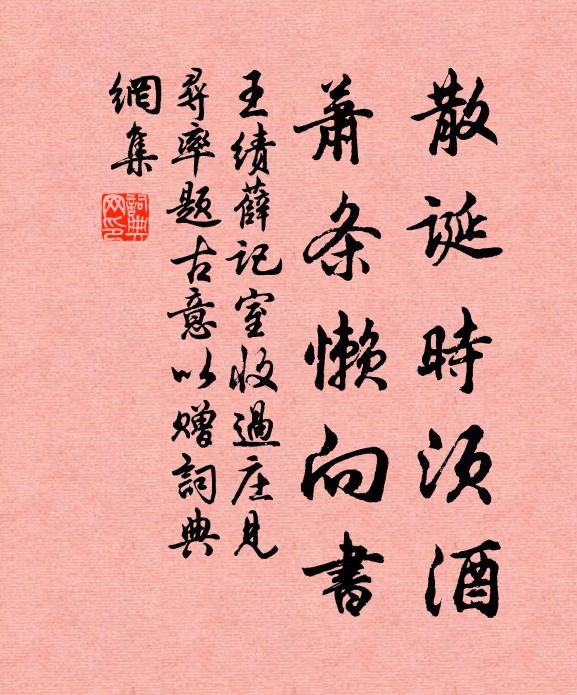 散誕時須酒
蕭条懶向書
王績薛記室收過庄見
尋率題古意以贈詞典
網集
詞典网印